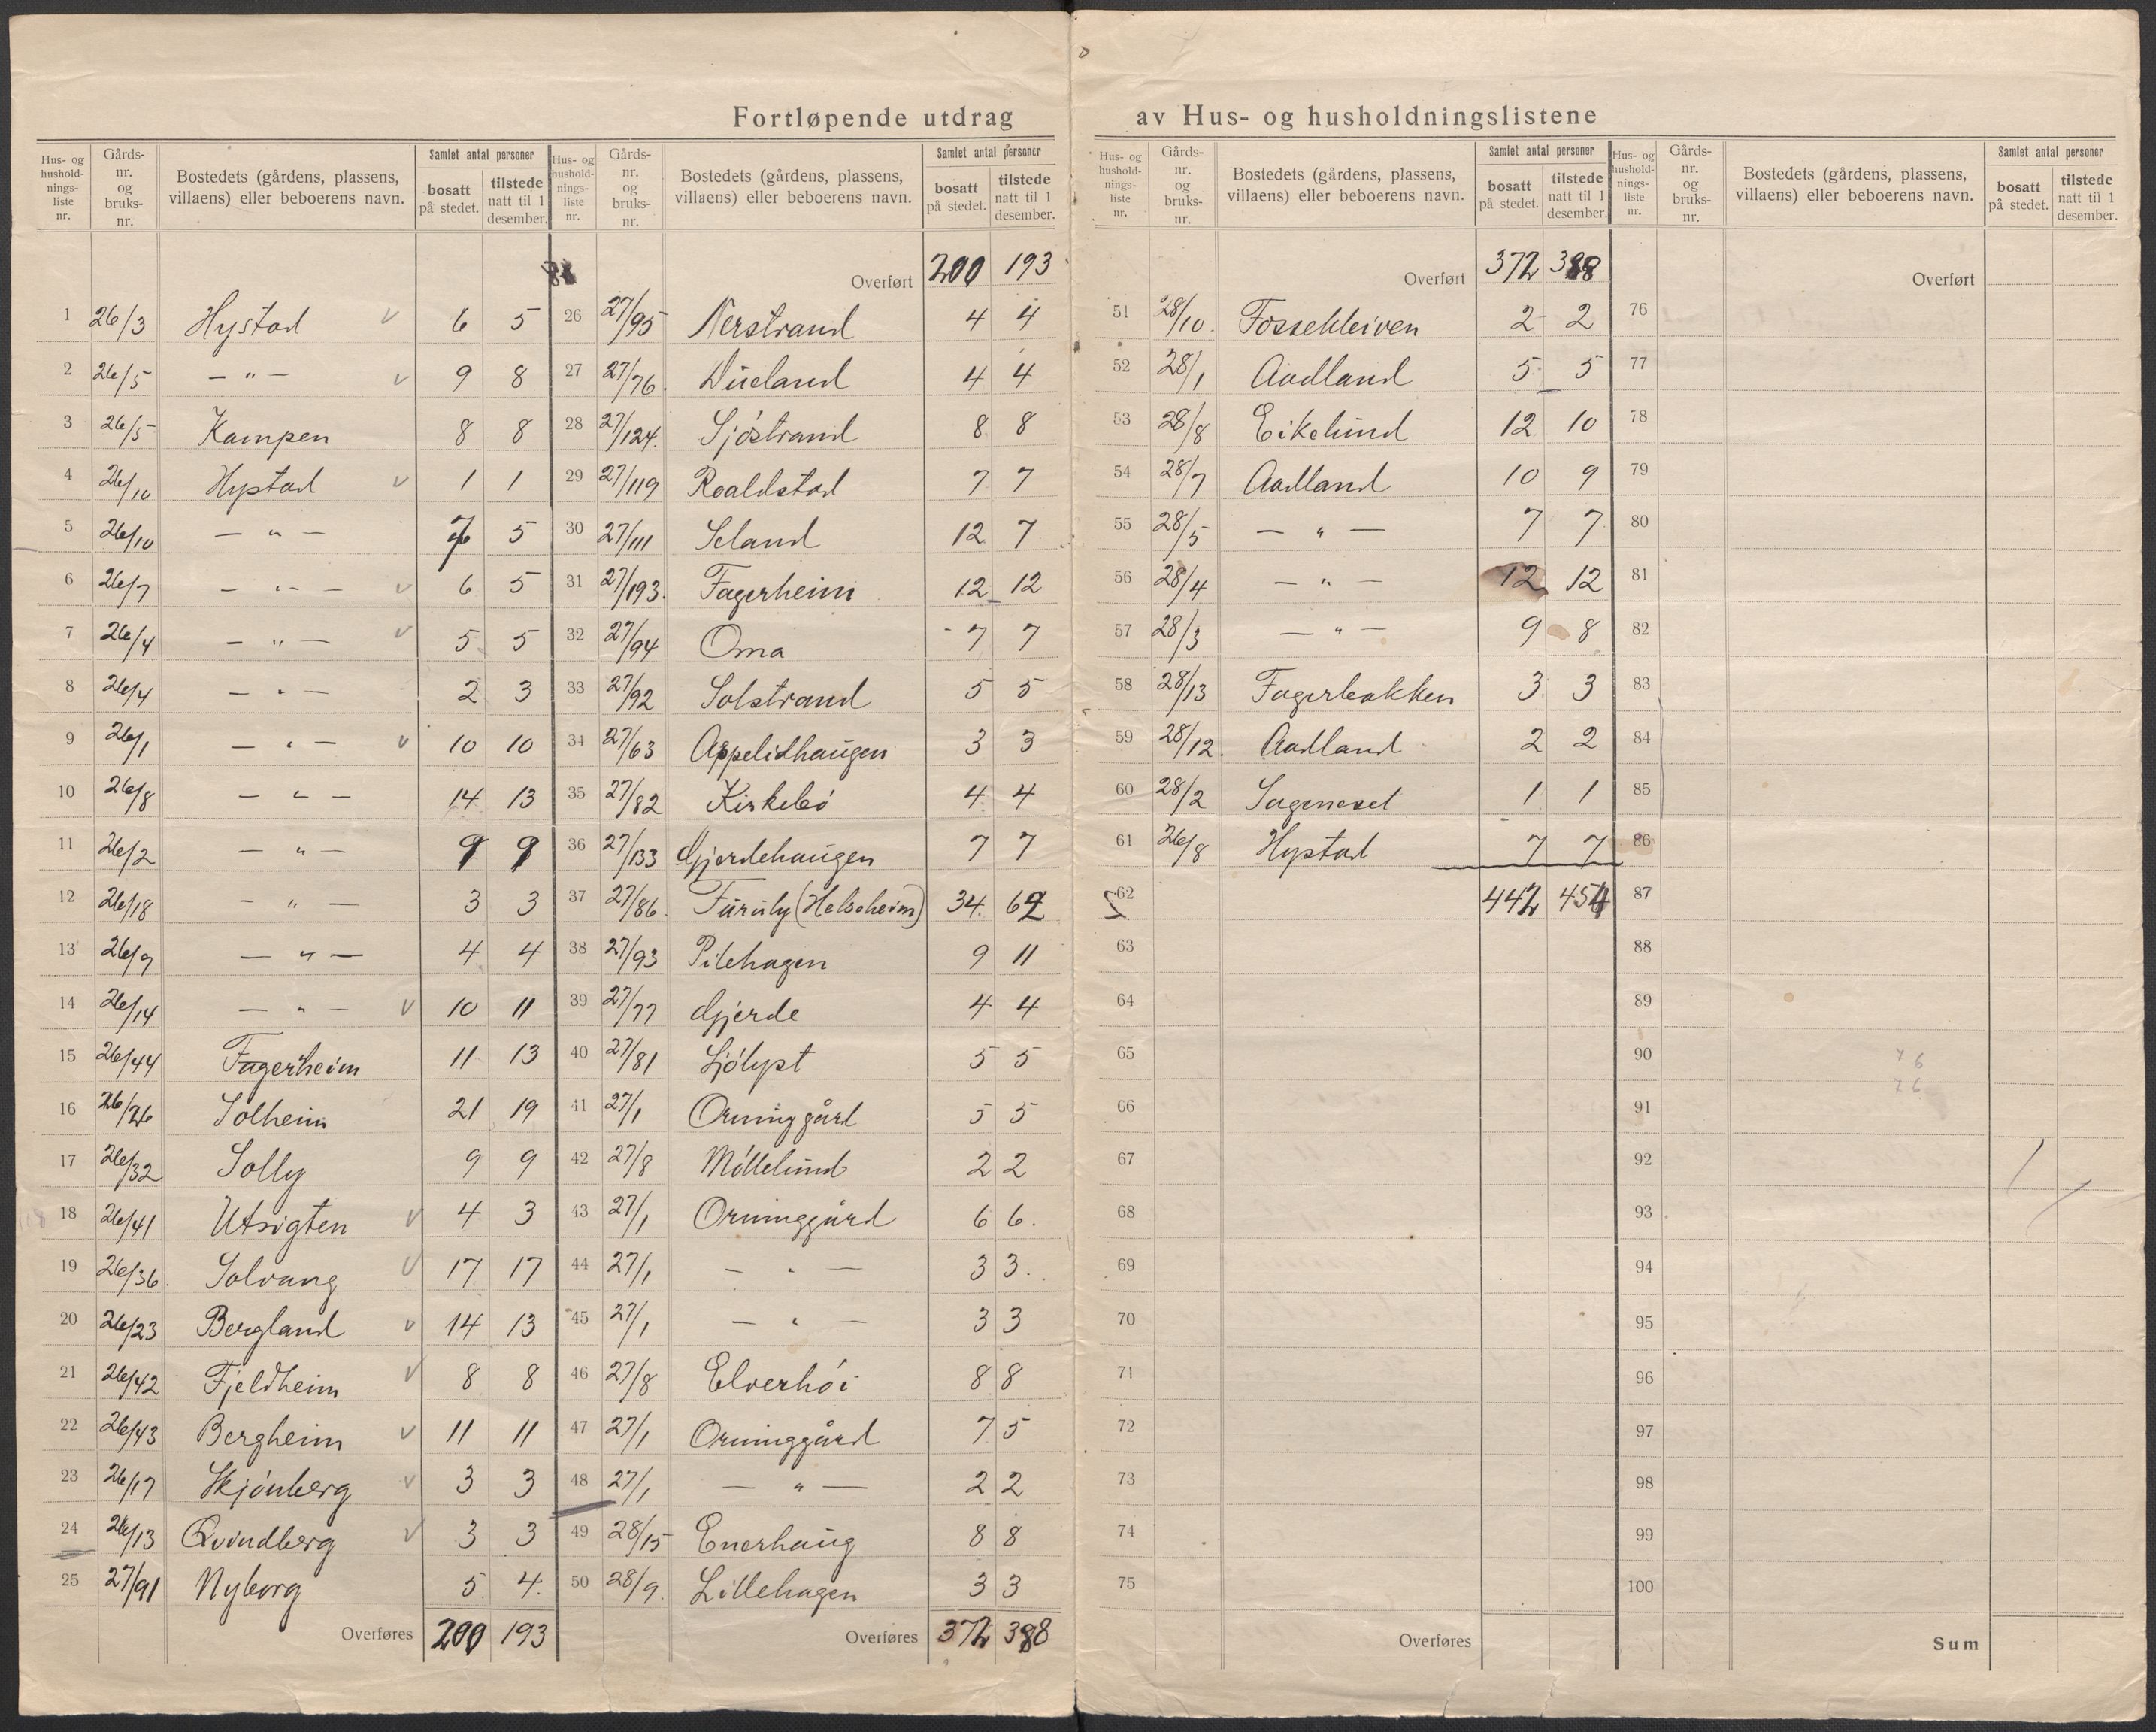 Fortløpende utdrag av Hus- og husholdningslistene
Hus- og husholdnings-liste nr. | Gårds-nr. og bruks-nr. | Bostedets (gårdens, plassens, villaens) eller beboerens navn. | Samlet antal personer bosatt på stedet. | tilstede natt til 1 desember.
1 26/3 Hystad v 6 5
2 26/5 — " — v 9 8
3 26/5 Kampen 8 8
4 26/10 Hystad v 1 1
5 26/10 — " — 7 5
6 26/7 — " — v 6 5
7 26/4 — " — v 5 5
8 26/4 — " — 2 3
9 26/1 — " — v 10 10
10 26/8 — " — 14 13
11 26/2 — " — 9 9
12 26/18 — " — 3 3
13 26/9 — " — 4 4
14 26/14 — " — v 10 11
15 26/44 Fagerheim 11 13
16 26/26 Solheim 21 19
17 26/32 Solly 9 9
18 26/41 Utsigten v 4 3
19 26/36. Solvang v 17 17
20 26/23 Bergland v 14 13
21 26/42 Fjeldheim v 8 8
22 26/43 Bergheim v 11 11
23 26/17 Skjönberg v 3 3
24 26/13 Qvindberg v 3 3
25 27/91 Nyborg 5 4
Overføres 200 193
Hus- og husholdnings-liste nr. | Gårds-nr. og bruks-nr. | Bostedets (gårdens, plassens, villaens) eller beboerens navn. | Samlet antal personer bosatt på stedet. | tilstede natt til 1 desember.
Overført 200 193
26 27/95 Nerstrand 4 4
27 27/76. Dueland 4 4
28 27/124. Sjöstrand 8 8
29 27/119 Roaldstad 7 7
30 27/111 Seland 12 7
31 27/193. Fagerheim 12 12
32 27/94 Oma 7 7
33 27/92 Solstrand 5 5
34 27/63 Appelidhaugen 3 3
35 27/82 Kirkebö 4 4
36 27/133 Gjerdehaugen 7 7
37 27/86. Furuly (Helseheim) 34 62
38 27/93 Pilehagen 9 11
39 27/77 Gjerde 4 4
40 27/81 Ljölyst 5 5
41 27/1 Orninggård 5 5
42 27/8 Möllelund 2 2
43 27/1 Orninggård 6 6.
44 27/1 — " — 3 3.
45 27/1 — " — 3 3
46 27/8 Elverhöi 8 8
47 27/1 Orninggård 7 5
48 27/1 — " — 2 2
49 28/15 Enerhaug 8 8
50 28/9. Lillehagen 3 3
Overføres 372 388
Hus- og husholdnings-liste nr. | Gårds-nr. og bruks-nr. | Bostedets (gårdens, plassens, villaens) eller beboerens navn. | Samlet antal personer bosatt på stedet. | tilstede natt til 1 desember.
Overført 372 388
51 28/10. Fossekleiven 2 2
52 28/1 Aadland 5 5
53 28/8 Eikelund 12 10
54 28/7 Aadland 10 9
55 28/5 — " — 7 7
56 28/4 — " — 12 12
57 28/3 — " — 9 8
58 28/13 Fagerbakken 3 3
59 28/12. Aadland 2 2
60 28/2 Sageneset 1 1
61 26/8 Hystad 7 7
62 442 454
63
64
65
66
67
68
69
70
71
72
73
74
75
Overføres
Hus- og husholdnings-liste nr. | Gårds-nr. og bruks-nr. | Bostedets (gårdens, plassens, villaens) eller beboerens navn. | Samlet antal personer bosatt på stedet. | tilstede natt til 1 desember.
Overført
76
77
78
79
80
81
82
83
84
85
86
87
88
89
90
91
92
93
94
95
96
97
98
99
100
Sum